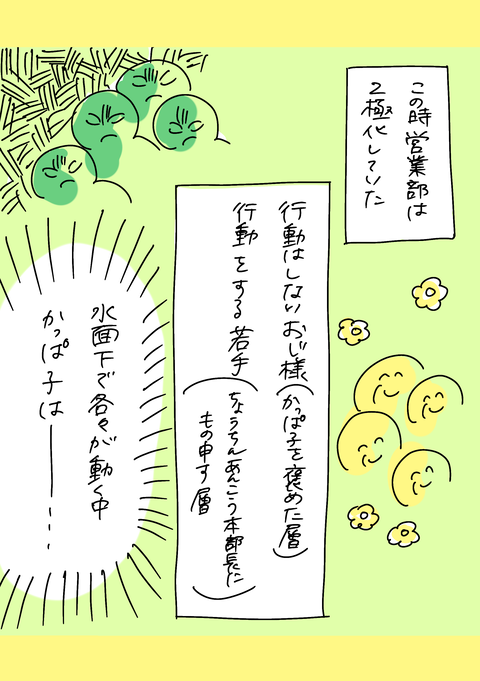 この時営業部は
2極化していた
行動はしないおじ様(かっぱ子を褒めた層)
行動をする若手(ちょうちんあんこう本部長に
もの申す層)
水面下で各々が動く中
かっぱ子は―――...